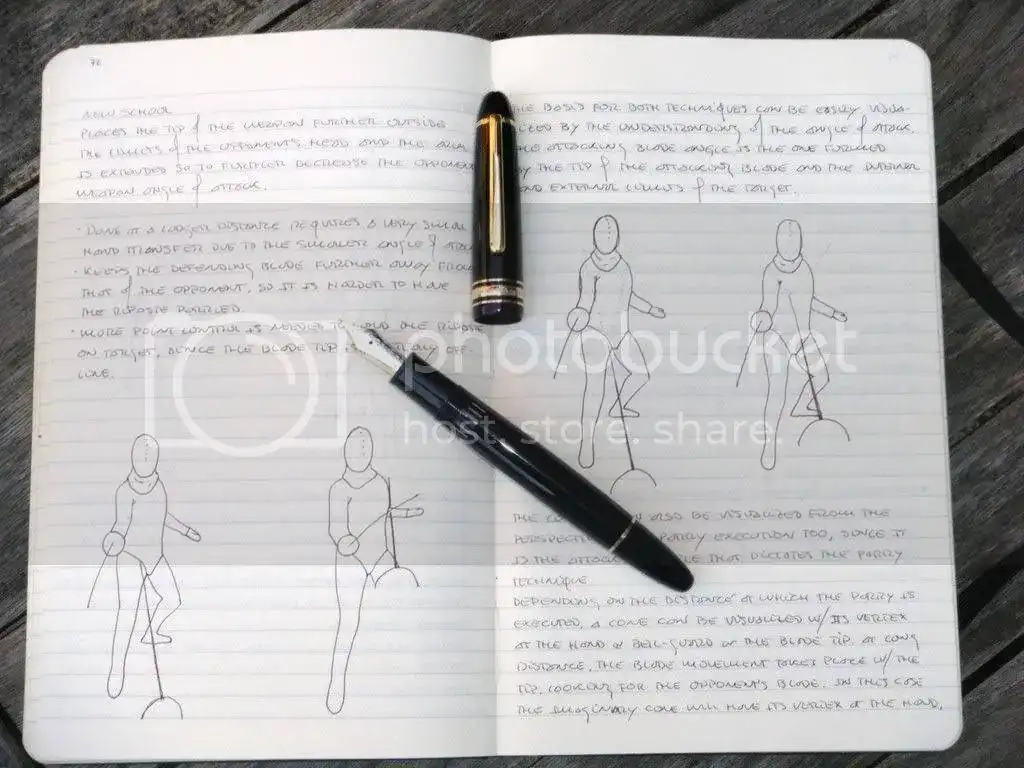 76
NEW SCHOOL
PLACES THE TIP of THE WEAPON FURTHER OUTSIDE
THE LIMITS of THE OPPONENT'S HEAD AND THE ARM
IS EXTENDED SO TO FURTHER DECREASE THE OPPONENT
WEAPON ANGLE of ATTACK.
· DONE AT A LONGER DISTANCE REQUIRES A VERY SMALL
HAND TRANSFER DUE TO THE SMALLER ANGLE of
· KEEPS THE DEFENDING BLADE FURTHER AWAY FROM
THAT of THE OPPONENT, SO IT IS HARDER TO HAVE
THE RIPOSTE PARRIED.
· MORE POINT CONTROL IS NEEDED THE RIPOSTE
ON TARGET, SINCE THE BLADE TIP IS OFF-
LINE.
THE BASIS FOR BOTH TECHNIQUES CAN BE EASILY VISUA-
LIZED BY THE UNDERSTANDING of THE ANGLE of ATTACK.
THE ATTACKING BLADE ANGLE IS THE ONE FORMED
BY THE TIP of THE ATTACKING BLADE AND THE INTERNAL
AND EXTERNAL LIMITS of THE TARGET.
photobucket
host. store. share.
THE ALSO BE VISUALIZED FROM THE
PARRY EXECUTION TOO, SINCE IT
IS THE THAT DICTATES THE PARRY
TECHNIQUE.
DEPENDING ON THE DISTANCE AT WHICH THE PARRY IS
EXECUTED, A CONE CAN BE VISUALIZED W/ ITS VERTEX
AT THE HAND or BELL-GUARD or THE BLADE TIP. AT LONG
DISTANCE, THE BLADE MOVEMENT TAKES PLACE W/ THE
TIP, LOOKING FOR THE OPPONENT'S BLADE. IN THIS CASE
THE IMAGINARY CONE WILL HAVE ITS VERTEX AT THE HAND,